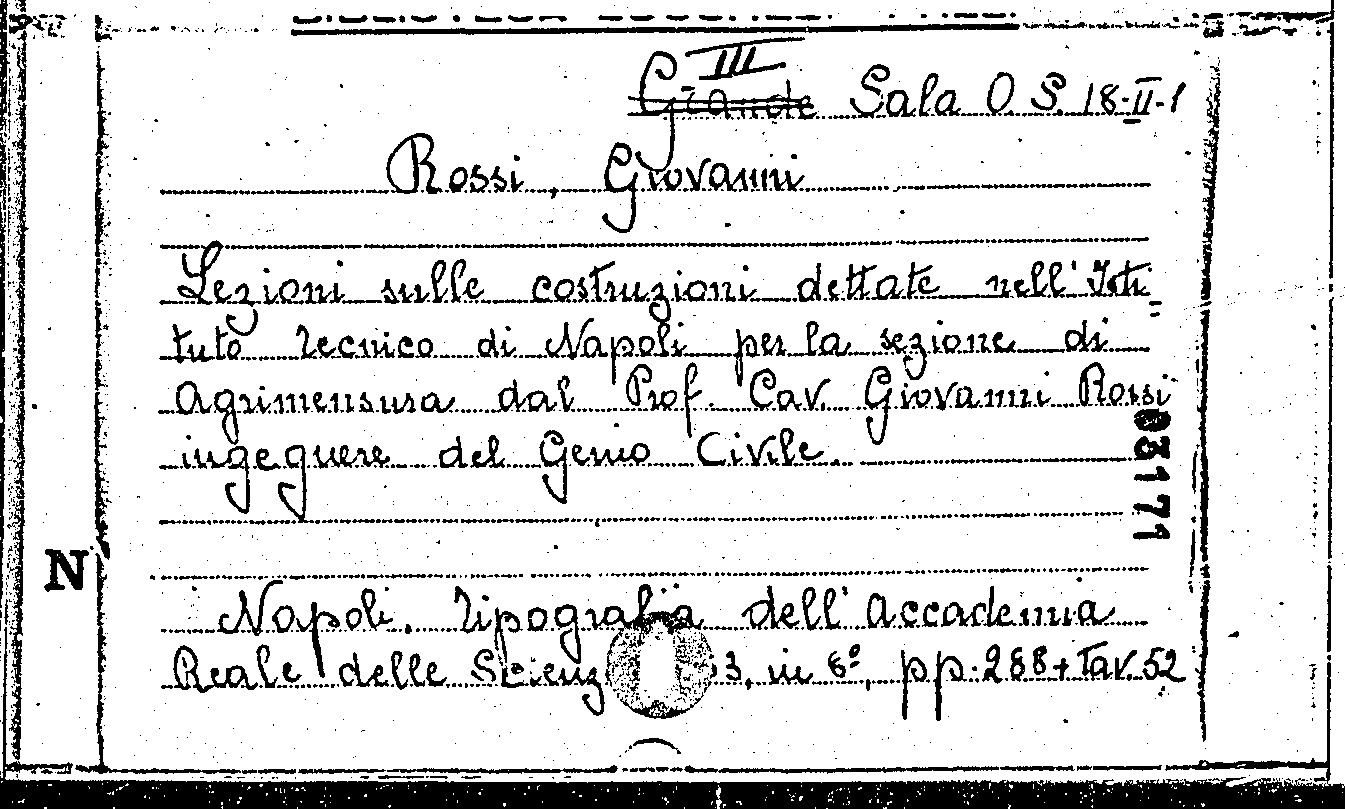 III
Grande Sala O. S. 18-II-1
Rossi, Giovanni
Lezioni sulle costruzioni dettate nell'Isti=
tuto Tecnico di Napoli per la sezione di
Agrimensura dal Prof. Cav. Giovanni Rossi
ingegnere del Genio Civile.
03171
N
Napoli. Tipografia dell'Accademia
Reale delle 3, in 8º, pp. 288 + Tav. 52